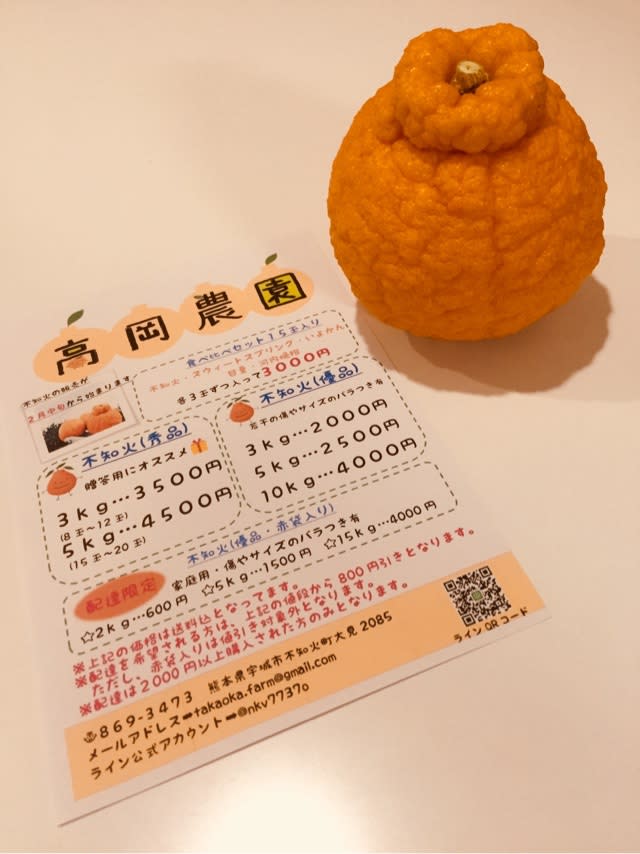 高岡農園
不知火の販売が
2月中旬から始まります
食べ比べセット15玉入り
不知火・スウィートスプリング・いよかん
甘夏・河内晩柑
各3玉ずつ入って3000円
不知火(秀品)
贈答用にオススメ
3kg…3500円
(8玉~12玉)
5kg…4500円
(15玉~20玉)
不知火(優品)
若干の傷やサイズのバラつき有
3kg…2000円
5kg…2500円
10kg…4000円
不知火(優品・赤袋入り)
配達限定
家庭用・傷やサイズのバラつき有
☆2kg…600円 ☆5kg…1500円 ☆15kg…4000円
※上記の価格は送料込となってます。
※配達を希望される方は、上記の値段から800円引きとなります。
ただし、赤袋入りは値引き対象外となります。
※配達は2000円以上購入された方のみとなります。
869-3473 熊本県宇城市不知火町大見2085
メールアドレス➡takaoka.farm@gmail.com
ライン公式アカウント➡@nkv7737o
ラインQRコード